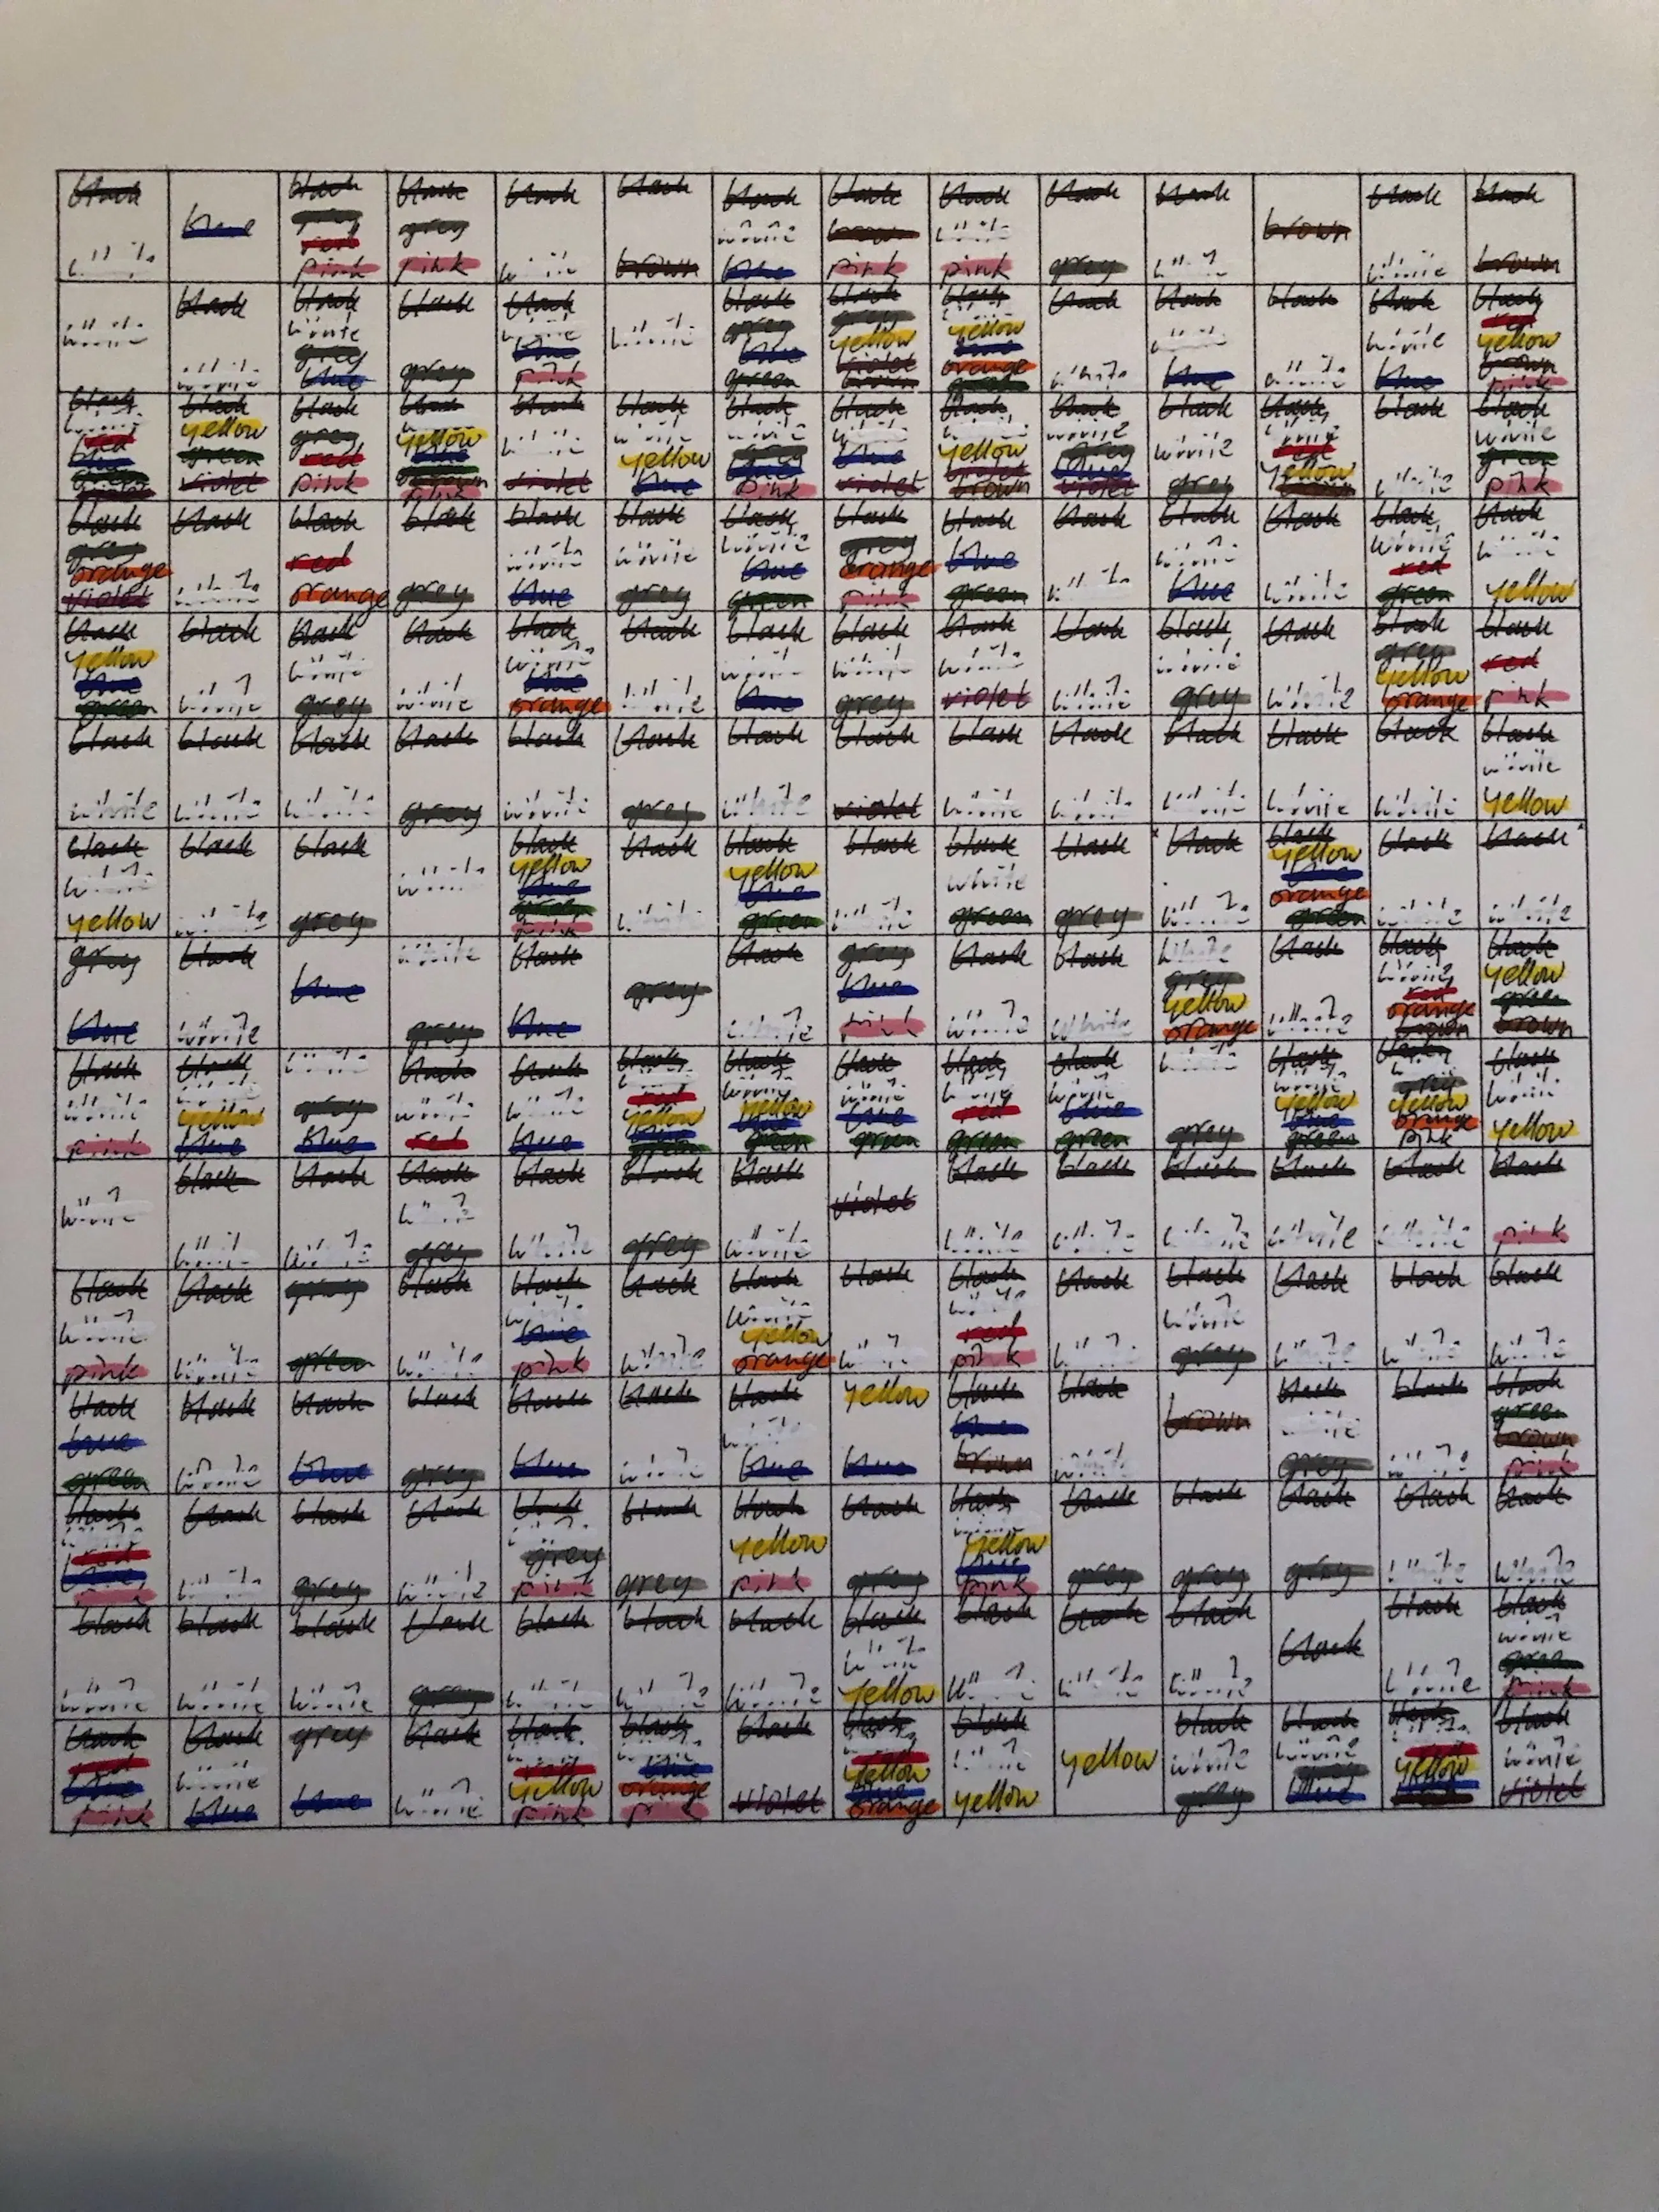 black
white
blue
black
grey
red
pink
black
grey
pink
black
white
black
brown
black
white
blue
black
brown
pink
black
white
pink
black
grey
black
white
brown
black
white
black
brown
white
black
white
black
white
grey
blue
black
grey
black
white
blue
pink
white
black
grey
blue
green
black
grey
yellow
violet
brown
black
white
yellow
blue
orange
green
black
white
black
white
blue
black
white
black
white
blue
black
red
yellow
brown
pink
black
white
red
blue
green
violet
black
yellow
green
violet
black
grey
red
pink
black
yellow
blue
green
brown
pink
black
white
violet
black
white
yellow
blue
black
white
grey
blue
pink
black
white
blue
violet
black
white
yellow
violet
brown
black
white
grey
blue
violet
black
white
grey
black
white
red
yellow
brown
black
white
black
white
green
pink
black
grey
orange
violet
black
white
black
red
orange
black
grey
black
white
blue
black
white
grey
black
white
blue
green
black
grey
orange
pink
black
blue
green
black
white
black
white
blue
black
white
black
white
red
green
black
white
yellow
black
yellow
blue
green
black
white
black
white
grey
black
white
black
white
blue
orange
black
white
black
white
blue
black
white
grey
black
white
violet
black
white
black
white
grey
black
white
black
grey
yellow
orange
black
red
pink
black
white
black
white
black
white
black
grey
black
white
black
grey
black
white
black
violet
black
white
black
white
black
white
black
white
black
white
black
white
yellow
black
white
yellow
black
white
black
grey
white
black
yellow
blue
green
pink
black
white
black
yellow
blue
green
black
white
black
white
green
black
grey
black
white
black
yellow
blue
orange
green
black
white
black
white
grey
blue
black
white
blue
white
grey
black
blue
grey
black
white
grey
blue
pink
black
white
black
white
white
grey
yellow
orange
black
white
black
white
red
orange
brown
black
yellow
green
brown
black
white
pink
black
white
yellow
blue
white
grey
blue
black
white
red
black
white
blue
black
white
red
yellow
blue
green
black
white
yellow
blue
green
black
white
blue
green
black
white
red
green
black
white
blue
green
white
grey
black
white
yellow
blue
green
black
white
grey
yellow
orange
pink
black
white
yellow
white
black
white
black
white
black
white
grey
black
white
black
grey
black
white
violet
black
white
black
white
black
white
black
white
black
white
black
pink
black
white
pink
black
white
grey
green
black
white
black
white
blue
pink
black
white
black
white
yellow
orange
black
white
black
white
red
pink
black
white
black
white
grey
black
white
black
white
black
white
black
blue
green
black
white
black
blue
black
grey
black
blue
black
white
black
white
blue
yellow
blue
black
blue
brown
black
white
brown
black
white
grey
black
white
black
green
brown
pink
black
white
red
blue
pink
black
white
black
grey
black
white
black
white
grey
pink
black
grey
black
yellow
pink
black
grey
black
white
yellow
blue
pink
black
grey
black
grey
black
grey
black
white
black
white
black
white
black
white
black
white
black
grey
black
white
black
white
black
white
black
white
yellow
black
white
black
white
black
white
black
black
white
black
white
green
pink
black
red
blue
pink
black
white
blue
grey
blue
black
white
black
white
red
yellow
pink
black
white
blue
orange
pink
black
violet
black
white
red
yellow
blue
orange
black
white
yellow
yellow
black
white
grey
black
white
grey
blue
black
white
red
yellow
blue
black
white
violet